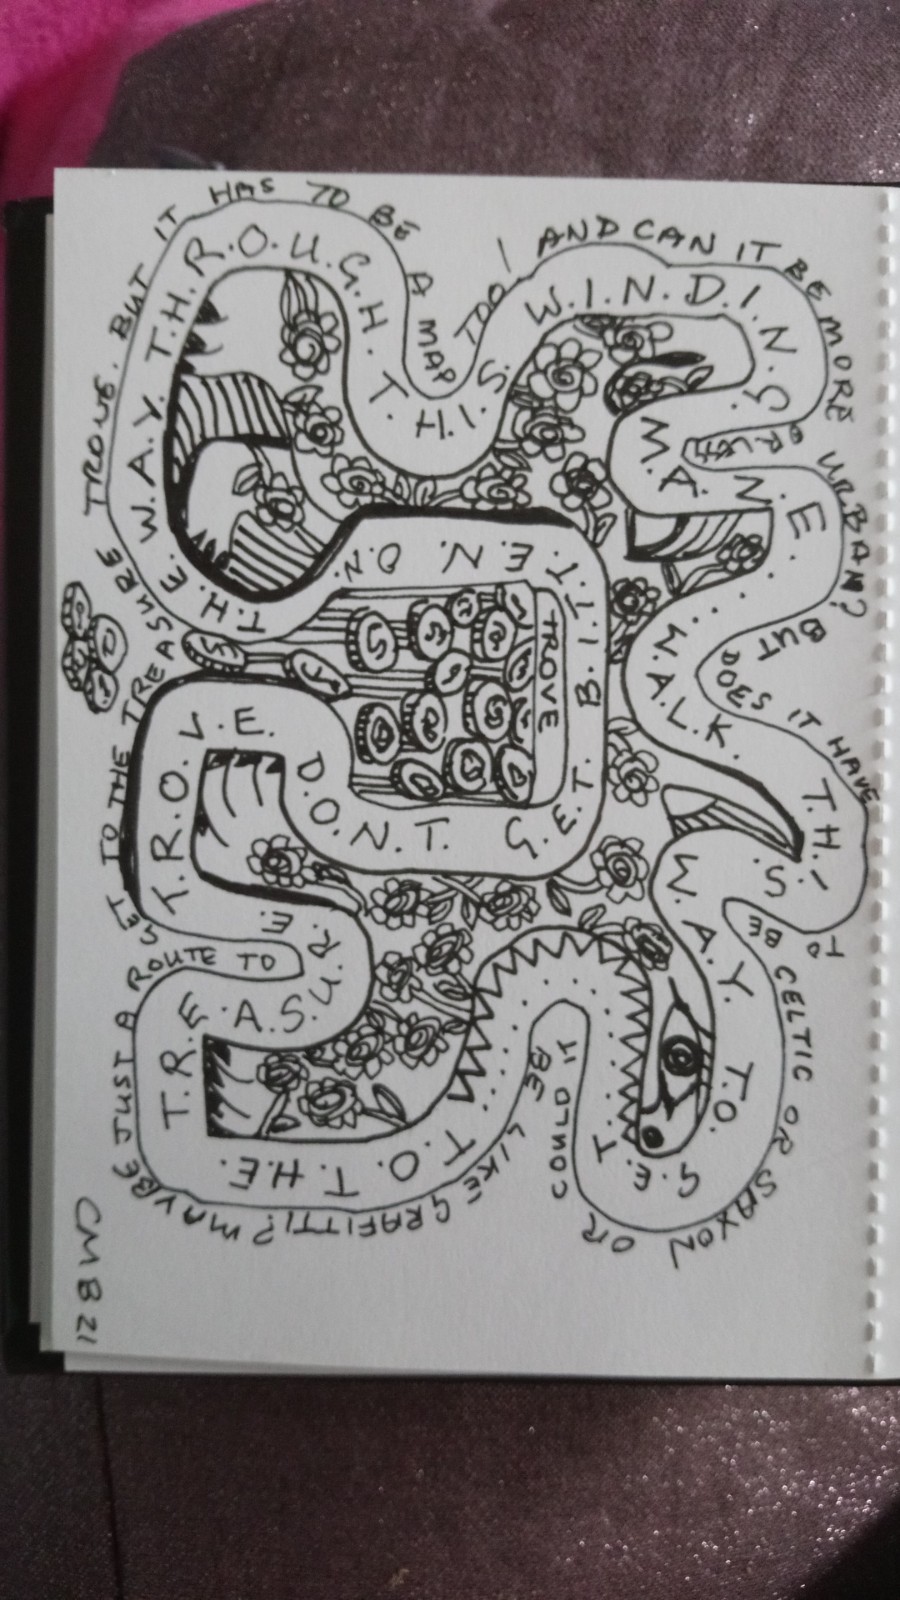 W.A.L.K. T.H.I.S. W.A.Y. T.O. G.E.T. T.O. T.H.E. T.R.E.A.S.U.R.E. T.R.O.V.E. D.O.N.T. G.E.T. B.I.T.T.E.N. O.N. T.H.E. W.A.Y. T.H.R.O.U.G.H. T.H.I.S. W.I.N.D.I.N.G. M.A.Z.E.
TROVE
MAYBE JUST A ROUTE TO GET TO THE TREASURE TROVE. BUT IT HAS TO BE A MAP TOO! AND CAN IT BE MORE OR URBAN? BUT DOES IT HAVE TO BE CELTIC OR SAXON OR COULD IT BE LIKE GRAFITTI?
CMB 21